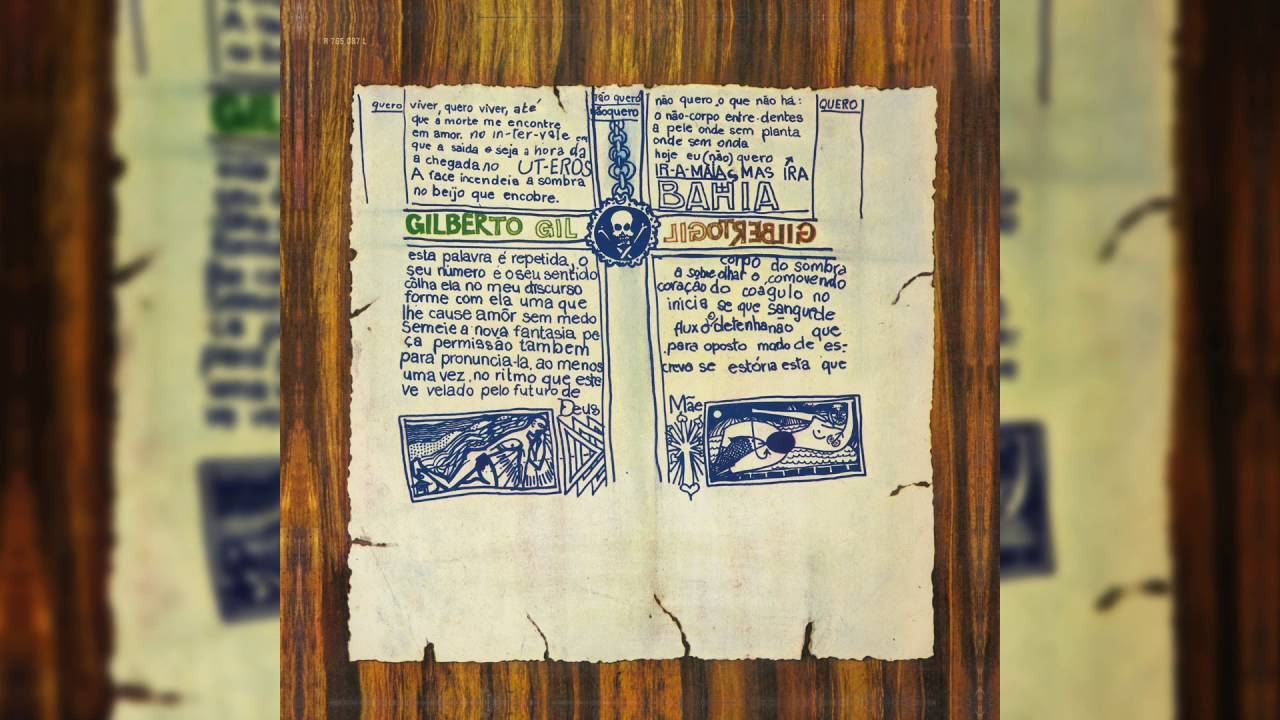 R 765.087 L
quero
viver, quero viver, até
que a morte me encontre
em amor. no in-ter-vale em
que a saida e seja a hora da
a chegada no UT-EROS
A face incendeia a sombra
no beijo que encobre.
não quero
nãoquero
não quero o que não há:
o não-corpo entre-dentes
a pele onde sem planta
onde sem onda
hoje eu (não) quero
IR-A-MAIAS MAS IRA
BAHIA
QUERO
GILBERTO GIL
GILBERTO GIL
esta palavra é repetida, o
seu número é o seu sentido
colha ela no meu discurso
forme com ela uma que
lhe cause amôr sem medo
Semeie a nova fantasia pe
ça permissão também
para pronuncia-la, ao menos
uma vez, no ritmo que este
ve velado pelo futuro de
Deus
corpo do sombra
a sobre olhar o comovendo
coração do coagulo no
inicia se que sangue de
fluxo detenha não que
para oposto modo de es-
creva se estória esta que
Mãe